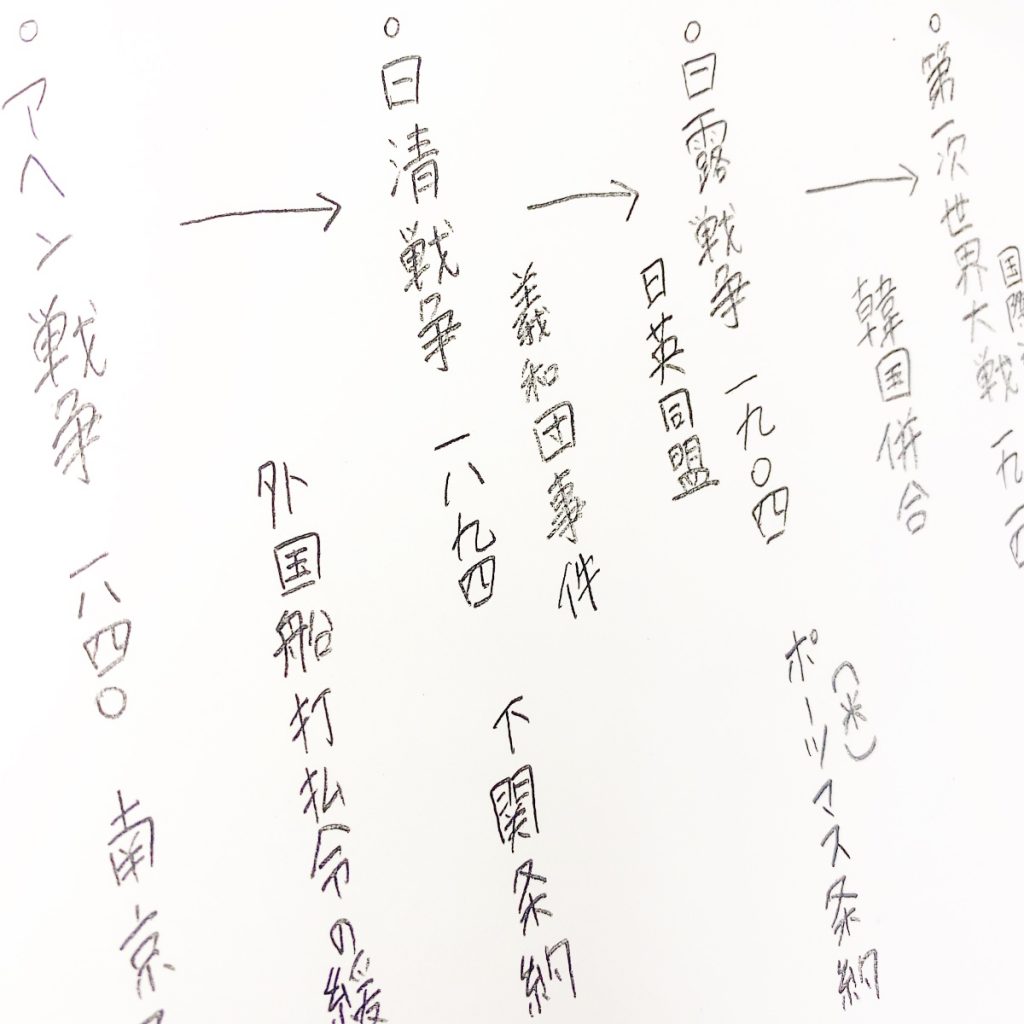 ○アヘン戦争 一八四〇 南京
→
外国船打払令の緩
○日清戦争 一八九四 下関条約
→
義和団事件
日英同盟
○日露戦争 一九〇四 ポーツマス条約
(米)
→
韓国併合
○第一次世界大戦 一九一四
国際